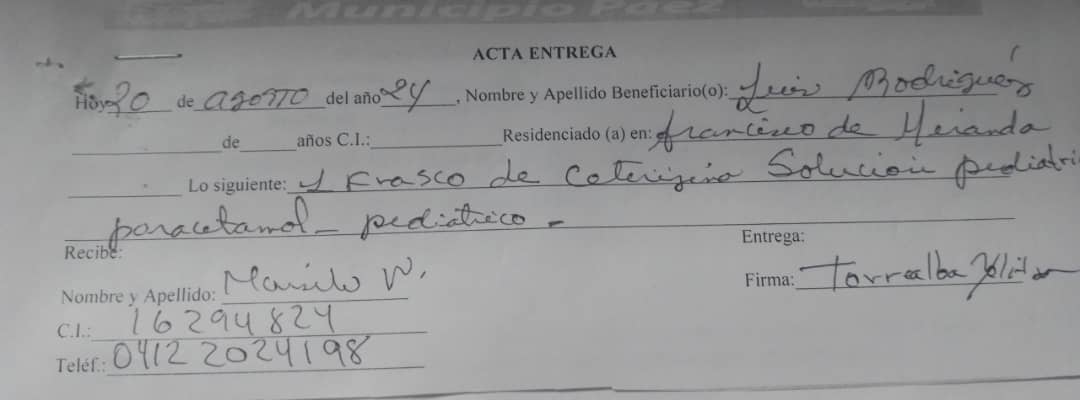 Municipio Páez
ACTA ENTREGA
Hoy 20 de agosto del año 24, Nombre y Apellido Beneficiario(o): Luis Rodriguez
de años C.I.: Residenciado (a) en: francisco de Miranda
Lo siguiente: 1 Frasco de Ceterizina Solución pediatri
paracetamol - pediatrico -
Recibe:
Entrega:
Nombre y Apellido: W.
Firma: Torrealba
C.I.: 16294824
Teléf.: 0412 2024198